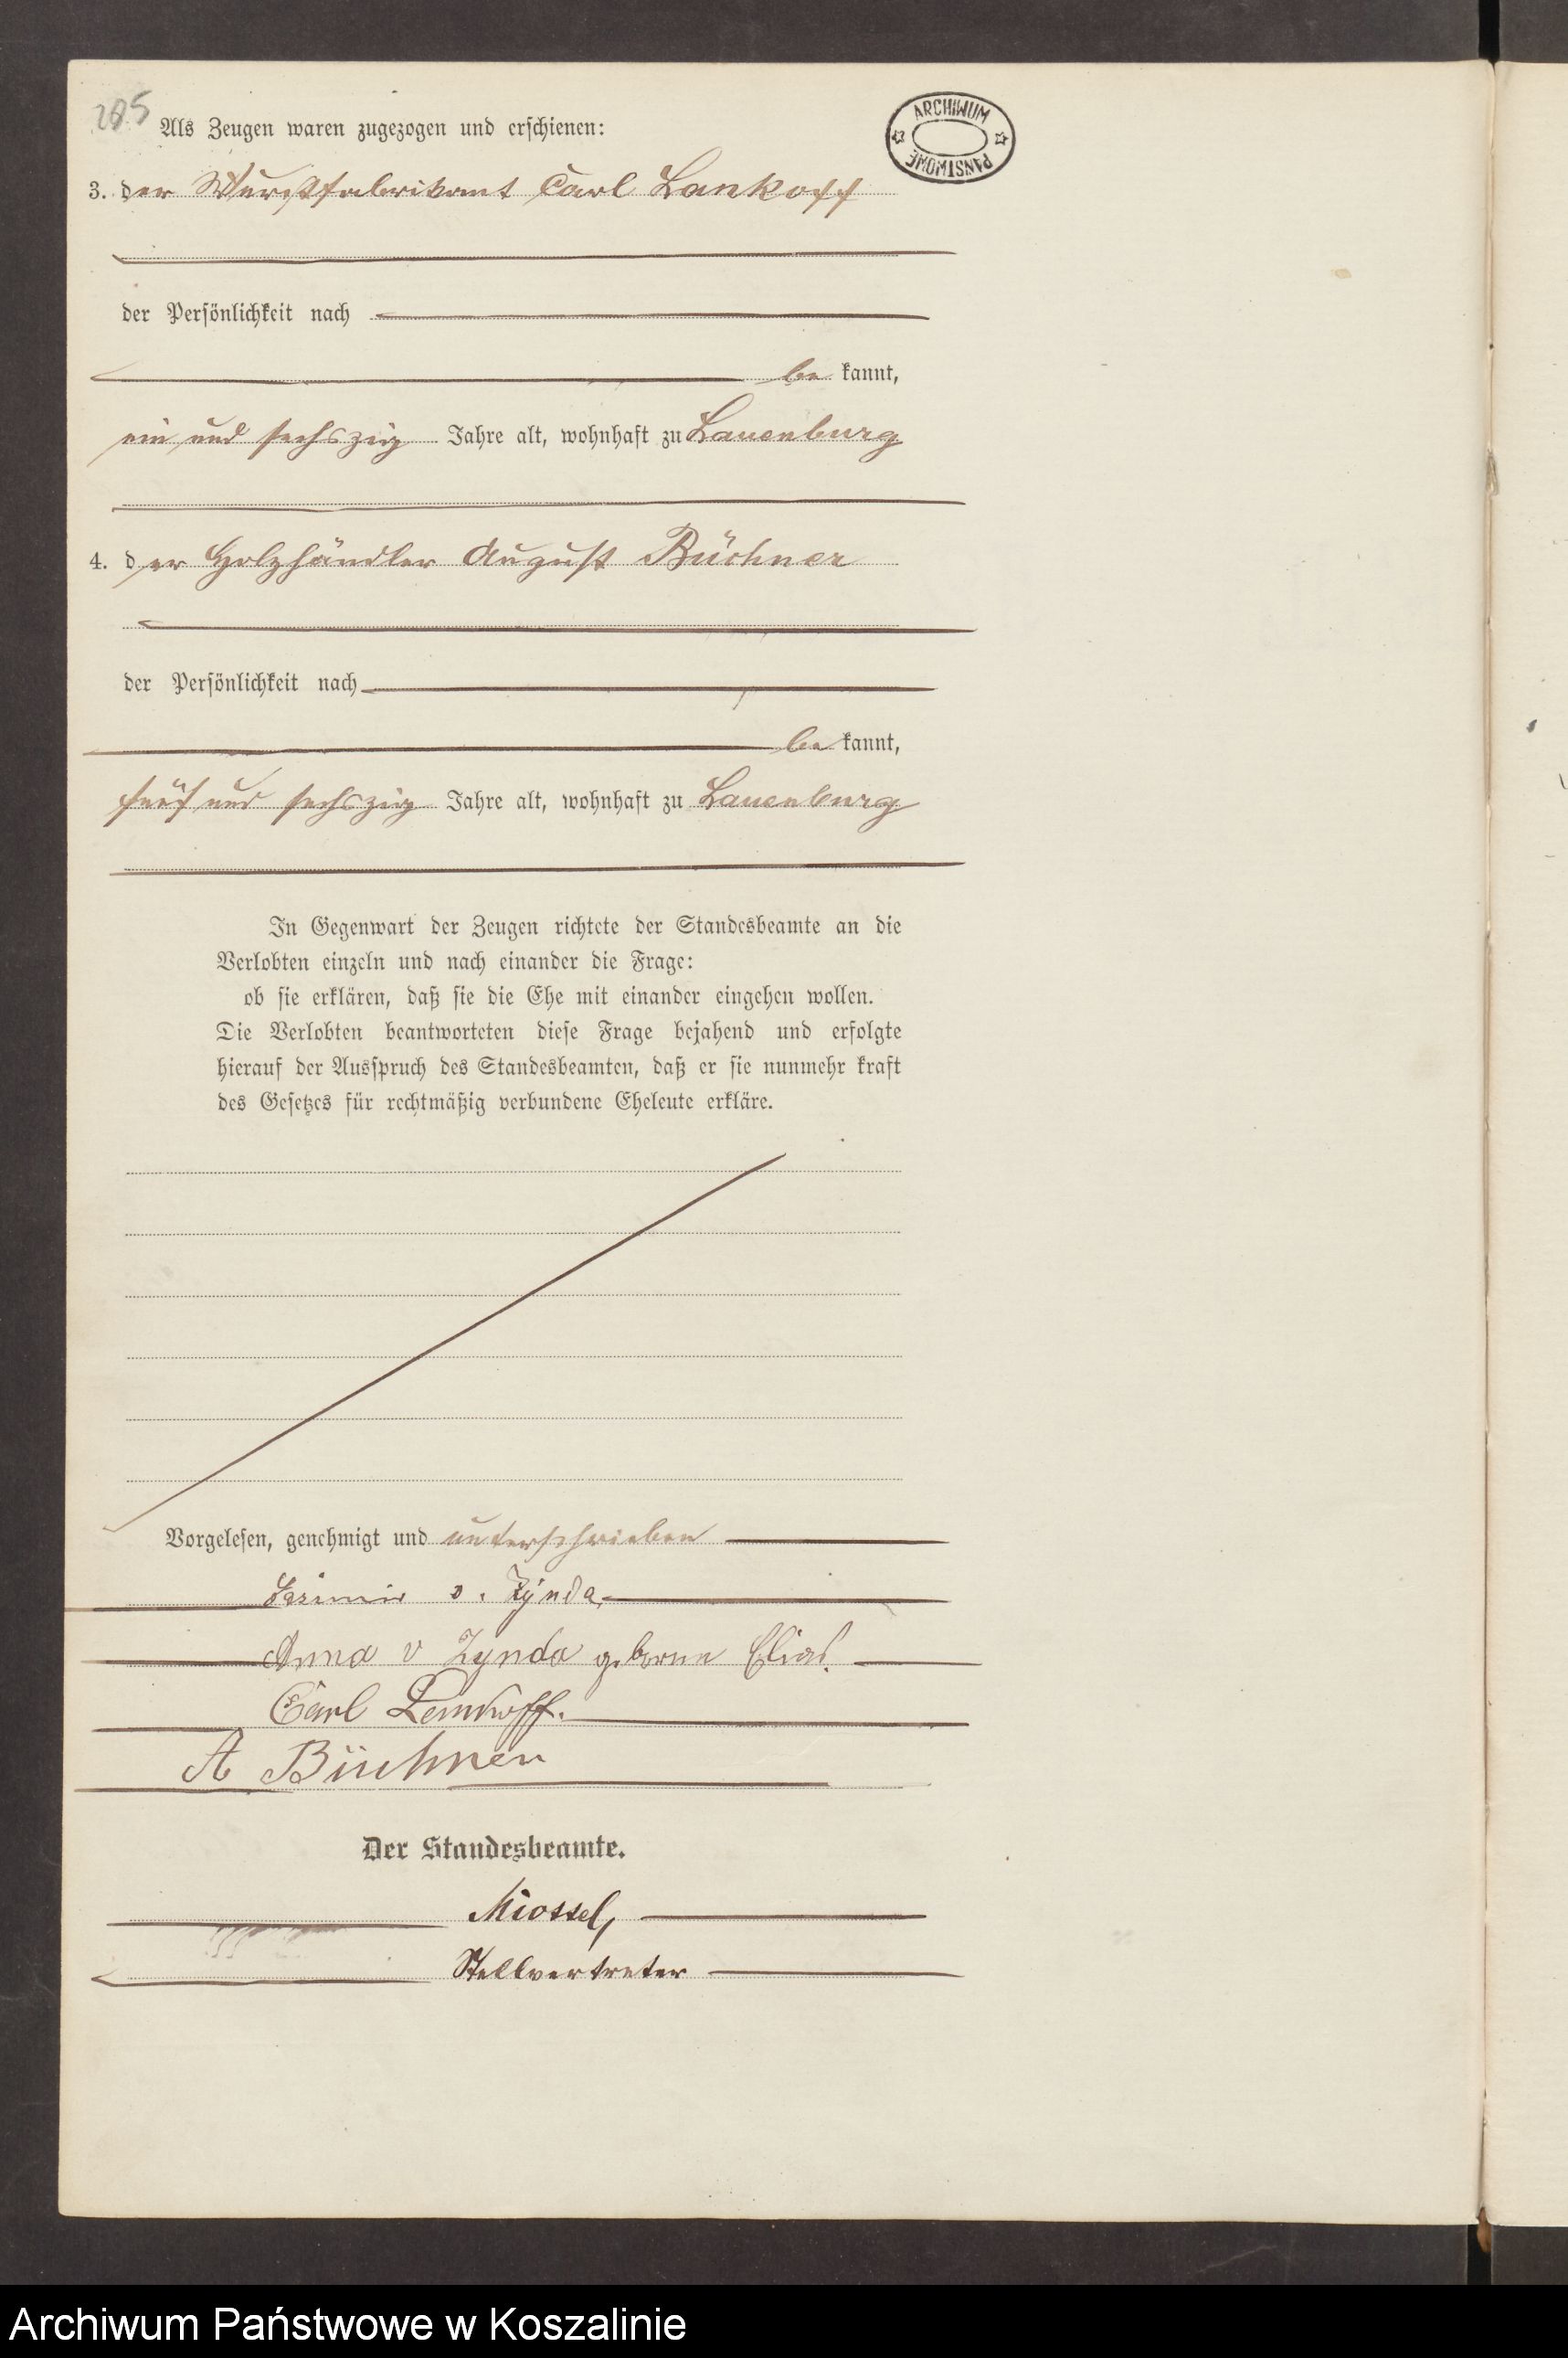 285
Als Zeugen waren zugezogen und erschienen:
ARCHIWUM PAŃSTWOWE
3. der Wurstfabrikant Carl Lankoff
der Persönlichkeit nach
be kannt,
ein und sechszig Jahre alt, wohnhaft zu Lauenburg
4. der Holzhändler August Büchner
der Persönlichkeit nach
be kannt,
fünf und sechszig Jahre alt, wohnhaft zu Lauenburg
In Gegenwart der Zeugen richtete der Standesbeamte an die
Verlobten einzeln und nach einander die Frage:
ob sie erklären, daß sie die Ehe mit einander eingehen wollen.
Die Verlobten beantworteten diese Frage bejahend und erfolgte
hierauf der Ausspruch des Standesbeamten, daß er sie nunmehr kraft
des Gesetzes für rechtmäßig verbundene Eheleute erkläre.
Vorgelesen, genehmigt und unterschrieben
v. Zynda
Anna v Zynda geborne Elias.
Carl Lankoff.
A Büchner
Der Standesbeamte.
Miossel,
Stellvertreter
Archiwum Państwowe w Koszalinie